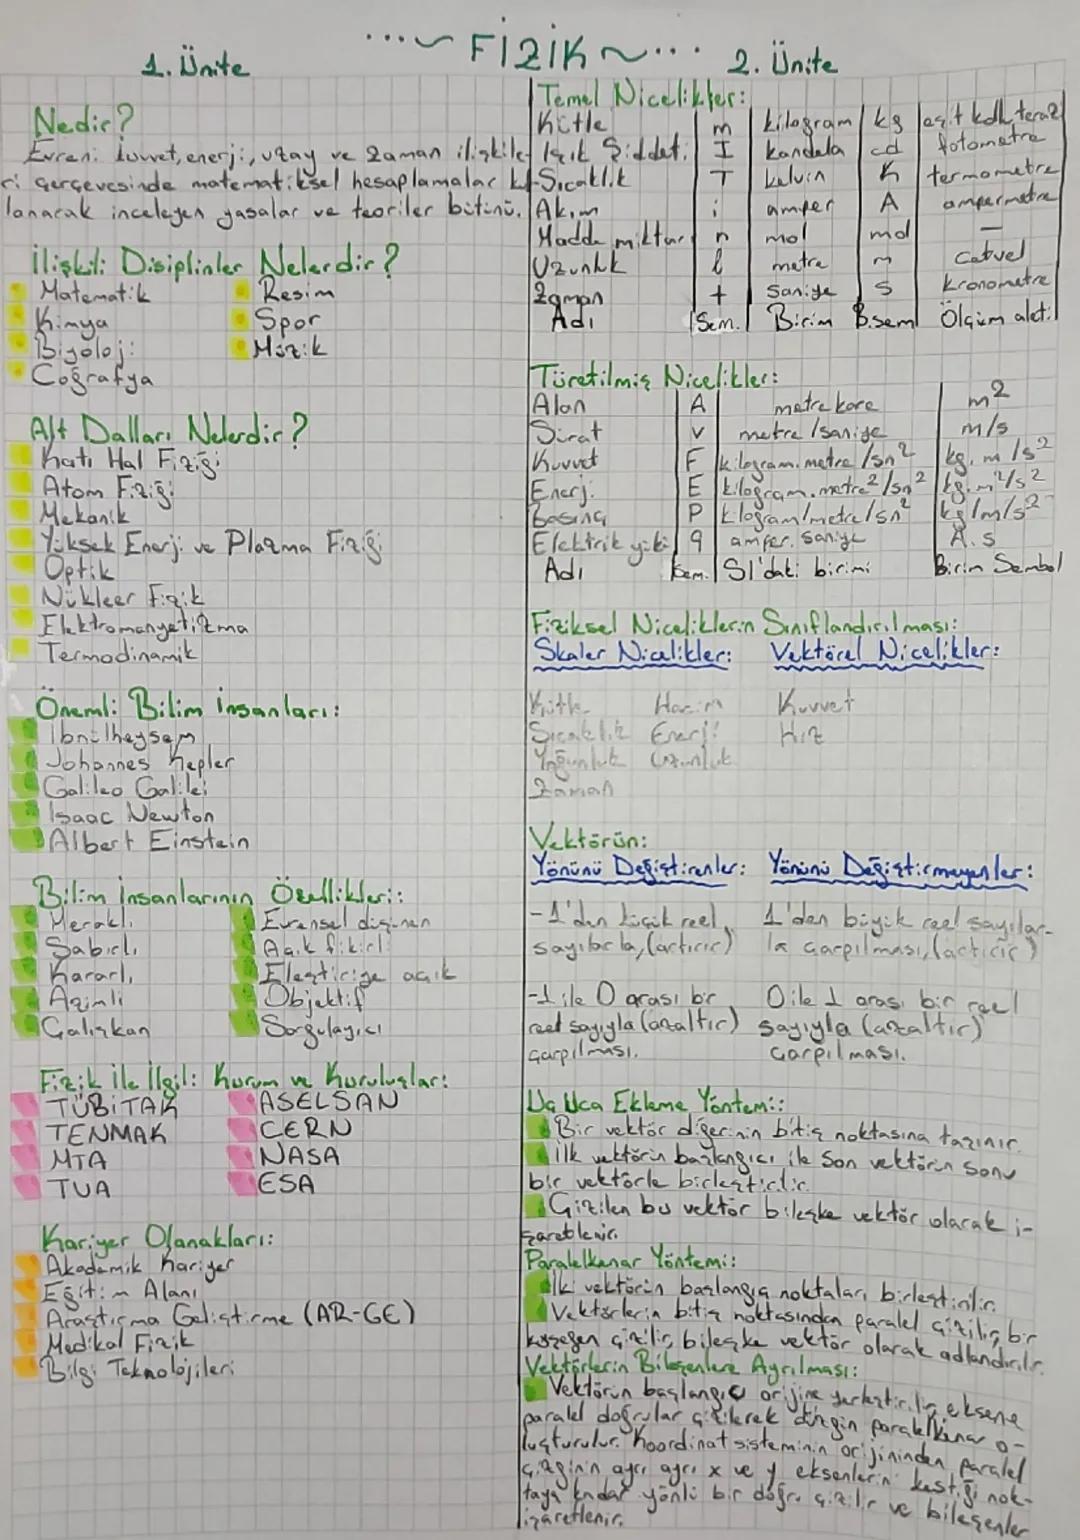 FİZİK
1. Ünite
Nedir?
Evreni kuvvet, enerji, uzay ve zaman ilişkile-
ri çerçevesinde matematiksel hesaplamalar kul-
lanarak inceleyen yasalar ve teoriler bütünü.
İlişkili Disiplinler Nelerdir?
Matematik
Kimya
Biyoloji
Coğrafya
Resim
Spor
Müzik
Alt Dalları Nelerdir?
Katı Hal Fiziği
Atom Fiziği
Mekanik
Yüksek Enerji ve Plazma Fiziği
Optik
Nükleer Fizik
Elektromanyetizma
Termodinamik
Önemli Bilim İnsanları:
İbnülheysem
Johannes Kepler
Galileo Galilei
Isaac Newton
Albert Einstein
Bilim İnsanlarının Özellikleri:
Meraklı
Sabırlı
Kararlı
Azimli
Çalışkan
Evrensel düşünen
Açık fikirli
Eleştiriye açık
Objektif
Sorgulayıcı
Fizik İle İlgili Kurum ve Kuruluşlar:
TÜBİTAK
TENMAK
MTA
TUA
ASELSAN
CERN
NASA
ESA
Kariyer Olanakları:
Akademik Kariyer
Eğitim Alanı
Araştırma Geliştirme (AR-GE)
Medikal Fizik
Bilgi Teknolojileri
2. Ünite
Temel Nicelikler:
Kütle m kilogram kg eşit kollu terazi
Işık Şiddeti I kandela cd fotometre
Sıcaklık T kelvin K termometre
Akım i amper A ampermetre
Madde miktarı n mol mol —
Uzunluk l metre m cetvel
Zaman t saniye s kronometre
Adı Sem. Birim B.sem Ölçüm aleti
Türetilmiş Nicelikler:
Alan A metre kare m²
Sürat v metre/saniye m/s
Kuvvet F kilogram.metre/sn² kg.m/s²
Enerji E kilogram.metre²/sn² kg.m²/s²
Basınç P kilogram/metre/sn² kg/m/s²
Elektrik yükü q amper.saniye A.s
Adı Sem. SI'daki birimi Birim Sembol
Fiziksel Niceliklerin Sınıflandırılması:
Skaler Nicelikler: Vektörel Nicelikler:
Kütle Hacim Kuvvet
Sıcaklık Enerji Hız
Yoğunluk Uzunluk
Zaman
Vektörün:
Yönünü Değiştirenler: Yönünü Değiştirmeyenler:
-1'den küçük reel
sayılarla, (artırır)
-1 ile 0 arası bir
reel sayıyla (azaltır)
çarpılması.
1'den büyük reel sayılar-
la çarpılması, (artırır)
0 ile 1 arası bir reel
sayıyla (azaltır)
çarpılması.
Uç Uca Ekleme Yöntemi:
Bir vektör diğerinin bitiş noktasına taşınır.
İlk vektörün başlangıcı ile son vektörün sonu
bir vektörle birleştirilir.
Çizilen bu vektör bileşke vektör olarak i-
şaretlenir.
Paralelkenar Yöntemi:
İki vektörün başlangıç noktaları birleştirilir.
Vektörlerin bitiş noktasından paralel çizilir, bir
köşegen çizilir, bileşke vektör olarak adlandırılır.
Vektörlerin Bileşenlere Ayrılması:
Vektörün başlangıcı orijine yerleştirilir, eksene
paralel doğrular çizilerek düzgün paralelkenar o-
luşturulur. Koordinat sisteminin orijininden paralel
çizginin ayrı ayrı x ve y eksenlerini kestiği nok-
taya kadar yönlü bir doğru çizilir ve bileşenler
işaretlenir.